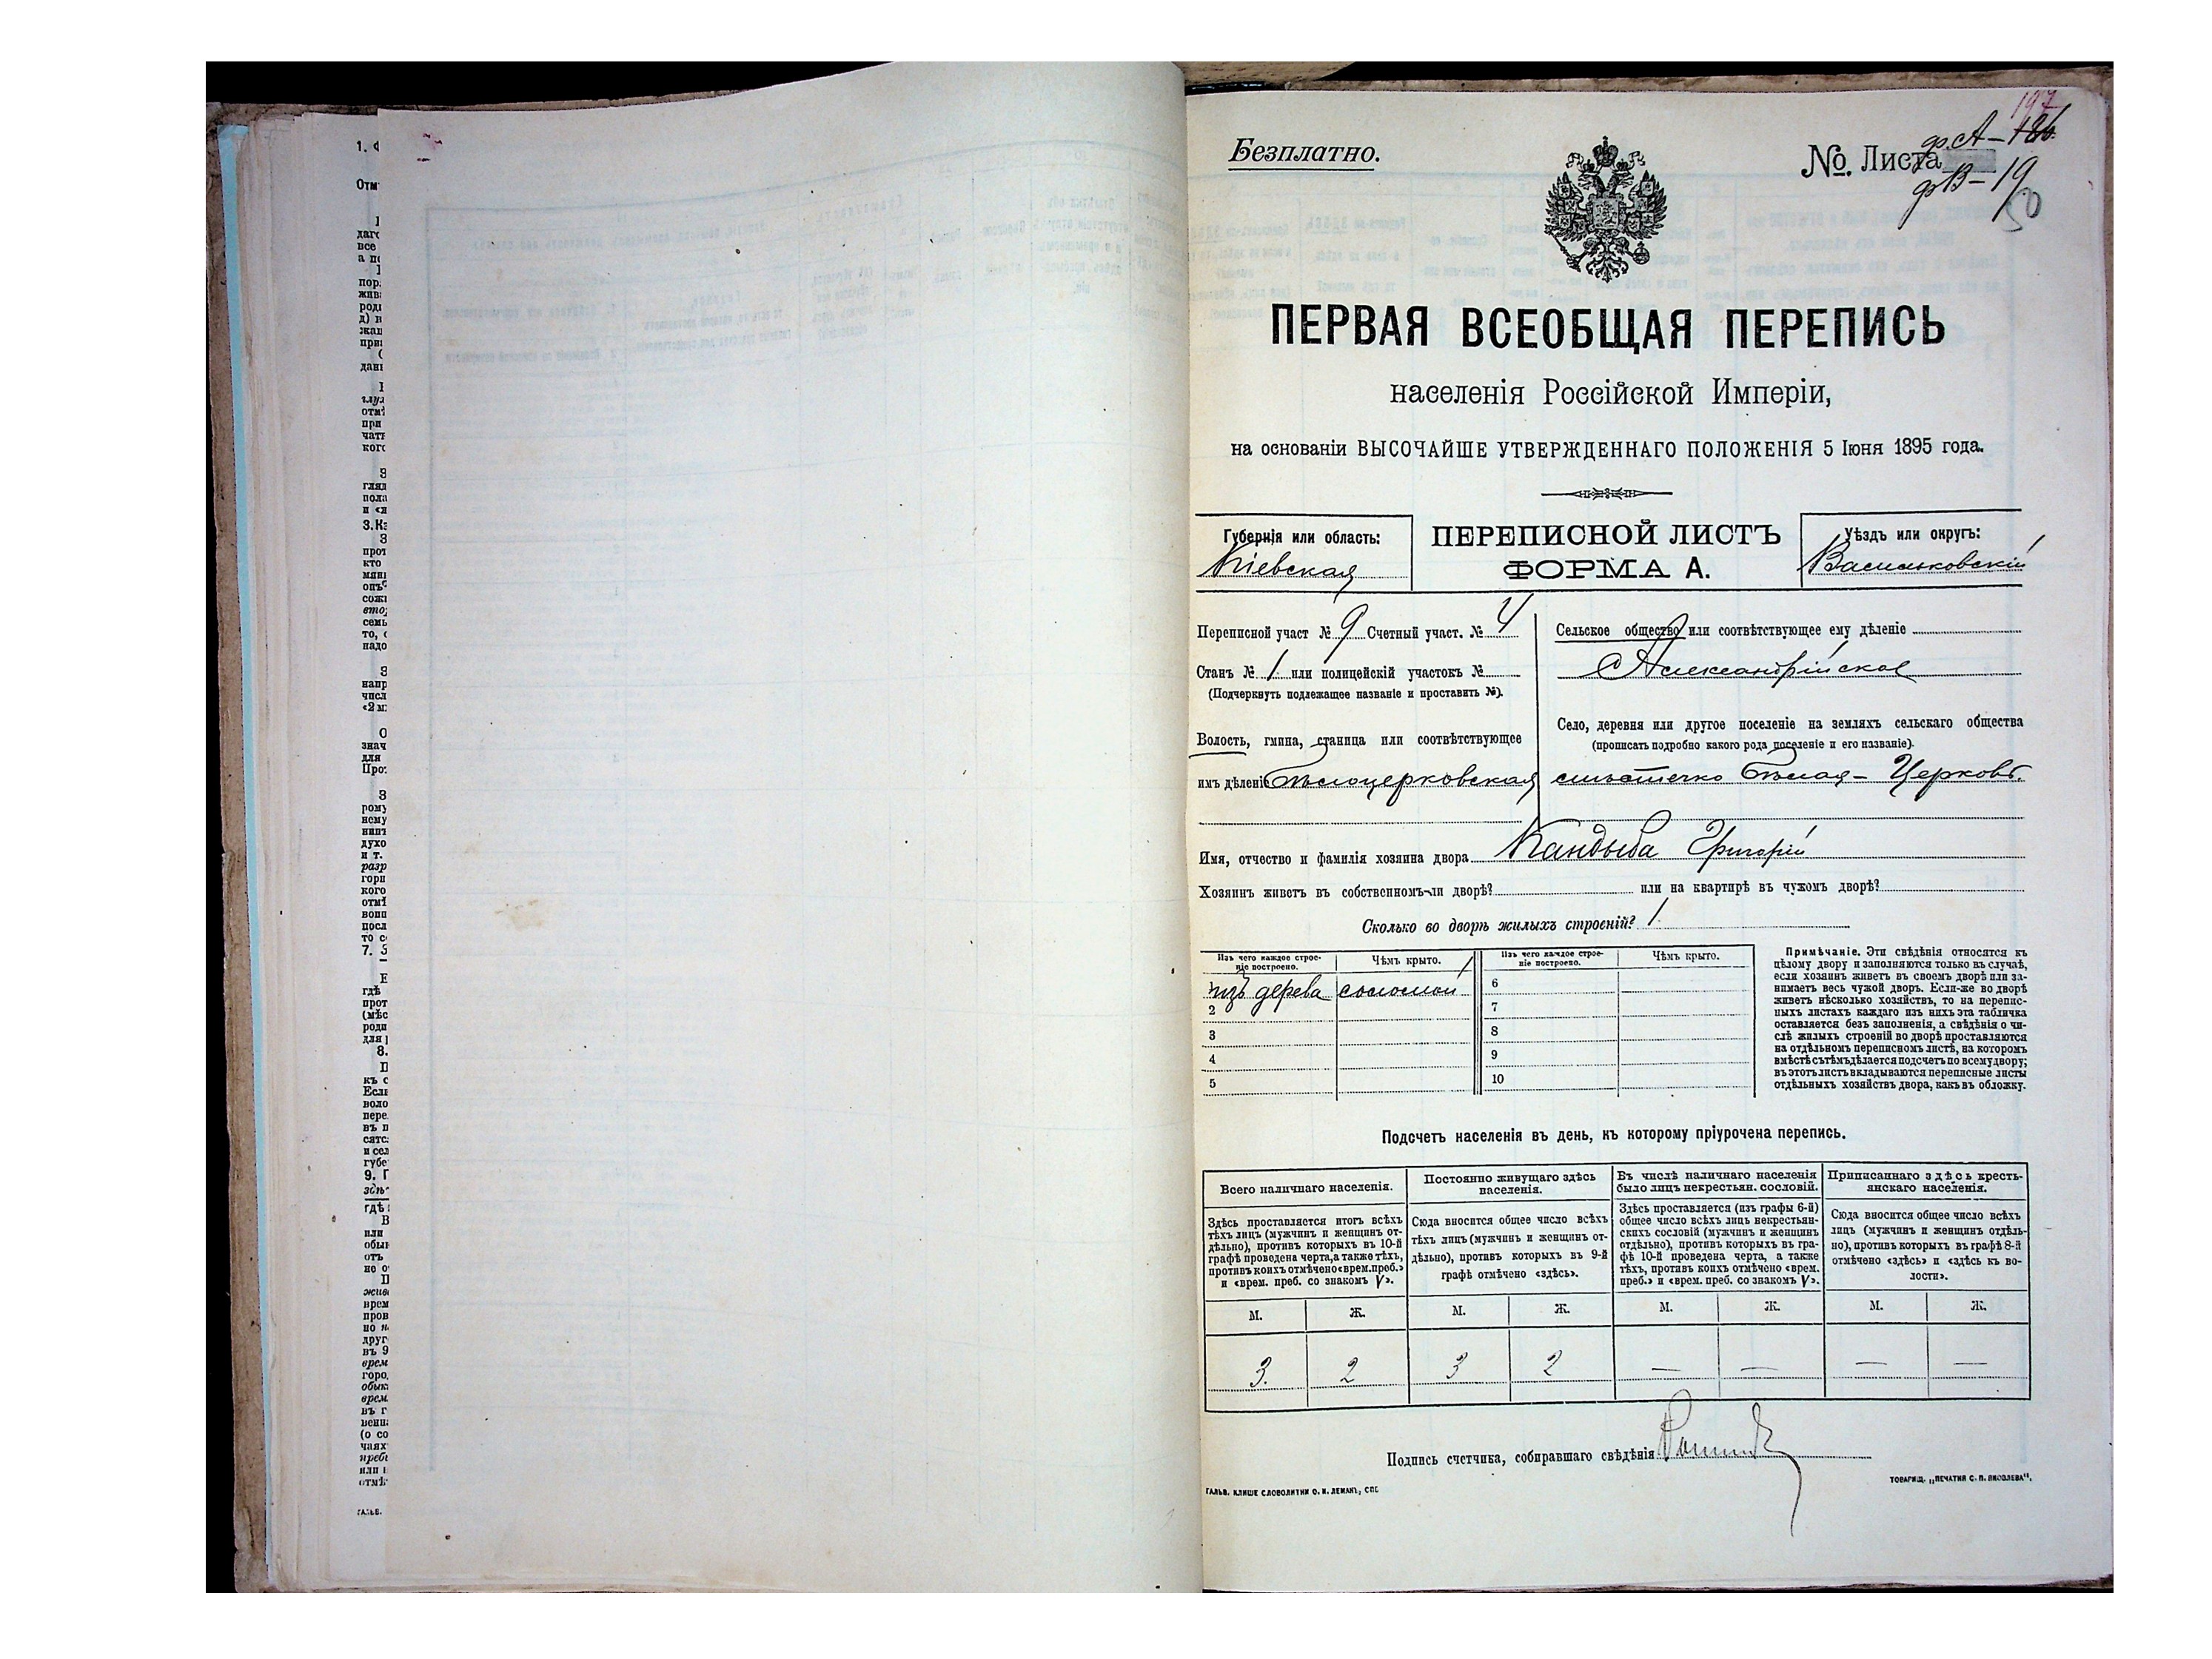 Безплатно.
№ Листа
ф. А – 126
197
ф В – 19
50
ПЕРВАЯ ВСЕОБЩАЯ ПЕРЕПИСЬ
населенія Россійской Имперіи,
на основаніи ВЫСОЧАЙШЕ УТВЕРЖДЕННАГО ПОЛОЖЕНІЯ 5 Іюня 1895 года.
Губернія или область:
Кіевская
ПЕРЕПИСНОЙ ЛИСТЪ
ФОРМА А.
Уѣздъ или округъ:
Васильковскій
Переписной участ № 9 Счетный участ. № 4
Станъ № 1 или полицейскій участокъ №
(Подчеркнуть подлежащее названіе и проставить №).
Волость, гмина, станица или соотвѣтствующее
имъ дѣленіе Бѣлоцерковская
Сельское общество или соотвѣтствующее ему дѣленіе
Александрійское
Село, деревня или другое поселеніе на земляхъ сельскаго общества
(прописать подробно какого рода поселеніе и его названіе).
мѣстечко Бѣлая-Церковь.
Имя, отчество и фамилія хозяина двора Кандыба Григорій
Хозяинъ живетъ въ собственномъ-ли дворѣ? или на квартирѣ въ чужомъ дворѣ?
Сколько во дворѣ жилыхъ строеній? 1
Изъ чего каждое строе-
ніе построено.
Чѣмъ крыто.
Изъ чего каждое строе-
ніе построено.
Чѣмъ крыто.
изъ дерева соломой 6
2 7
3 8
4 9
5 10
Примѣчаніе. Эти свѣдѣнія относятся къ
цѣлому двору и заполняются только въ случаѣ,
если хозяинъ живетъ въ своемъ дворѣ или за-
нимаетъ весь чужой дворъ. Если-же во дворѣ
живетъ нѣсколько хозяйствъ, то на перепис-
ныхъ листахъ каждаго изъ нихъ эта табличка
оставляется безъ заполненія, а свѣдѣнія о чи-
слѣ жилыхъ строеній во дворѣ проставляются
на отдѣльномъ переписномъ листѣ, на которомъ
вмѣстѣ съ тѣмъ дѣлается подсчетъ по всему двору;
въ этотъ листъ вкладываются переписные листы
отдѣльныхъ хозяйствъ двора, какъ въ обложку.
Подсчетъ населенія въ день, къ которому пріурочена перепись.
Всего наличнаго населенія.
Здѣсь проставляется итогъ всѣхъ
тѣхъ лицъ (мужчинъ и женщинъ от-
дѣльно), противъ которыхъ въ 10-й
графѣ проведена черта, а также тѣхъ,
противъ коихъ отмѣчено «врем. преб.»
и «врем. преб. со знакомъ V».
Постоянно живущаго здѣсь
населенія.
Сюда вносится общее число всѣхъ
тѣхъ лицъ (мужчинъ и женщинъ от-
дѣльно), противъ которыхъ въ 9-й
графѣ отмѣчено «здѣсь».
Въ числѣ наличнаго населенія
было лицъ некрестьян. сословій.
Здѣсь проставляется (изъ графы 6-й)
общее число всѣхъ лицъ некрестьян-
скихъ сословій (мужчинъ и женщинъ
отдѣльно), противъ которыхъ въ гра-
фѣ 10-й проведена черта, а также
тѣхъ, противъ коихъ отмѣчено «врем.
преб.» и «врем. преб. со знакомъ V».
Приписаннаго здѣсь кресть-
янскаго населенія.
Сюда вносится общее число всѣхъ
лицъ (мужчинъ и женщинъ отдѣль-
но), противъ которыхъ въ графѣ 8-й
отмѣчено «здѣсь» и «здѣсь къ во-
лости».
М. Ж. М. Ж. М. Ж. М. Ж.
3. 2 3 2 — — — —
Подпись счетчика, собиравшаго свѣдѣнія
ГАЛЬВ. КЛИШЕ СЛОВОЛИТНИ О. И. ЛЕМАНЪ, СПБ
ТОВАРИЩ. „ПЕЧАТНЯ С. П. ЯКОВЛЕВА“.